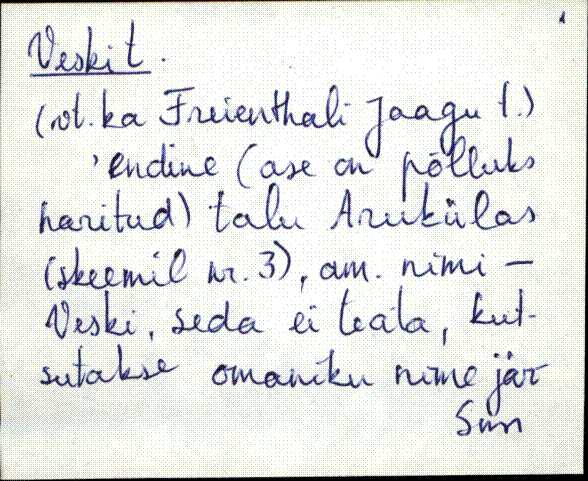 Veski t.
(vt. ka Freienthali Jaagu t.)
'endine (ase on põlluks
haritud) talu Arukülas
(skeemil nr. 3), am. nimi –
Veski, seda ei teata, kut-
sutakse omaniku nime jär
Sim